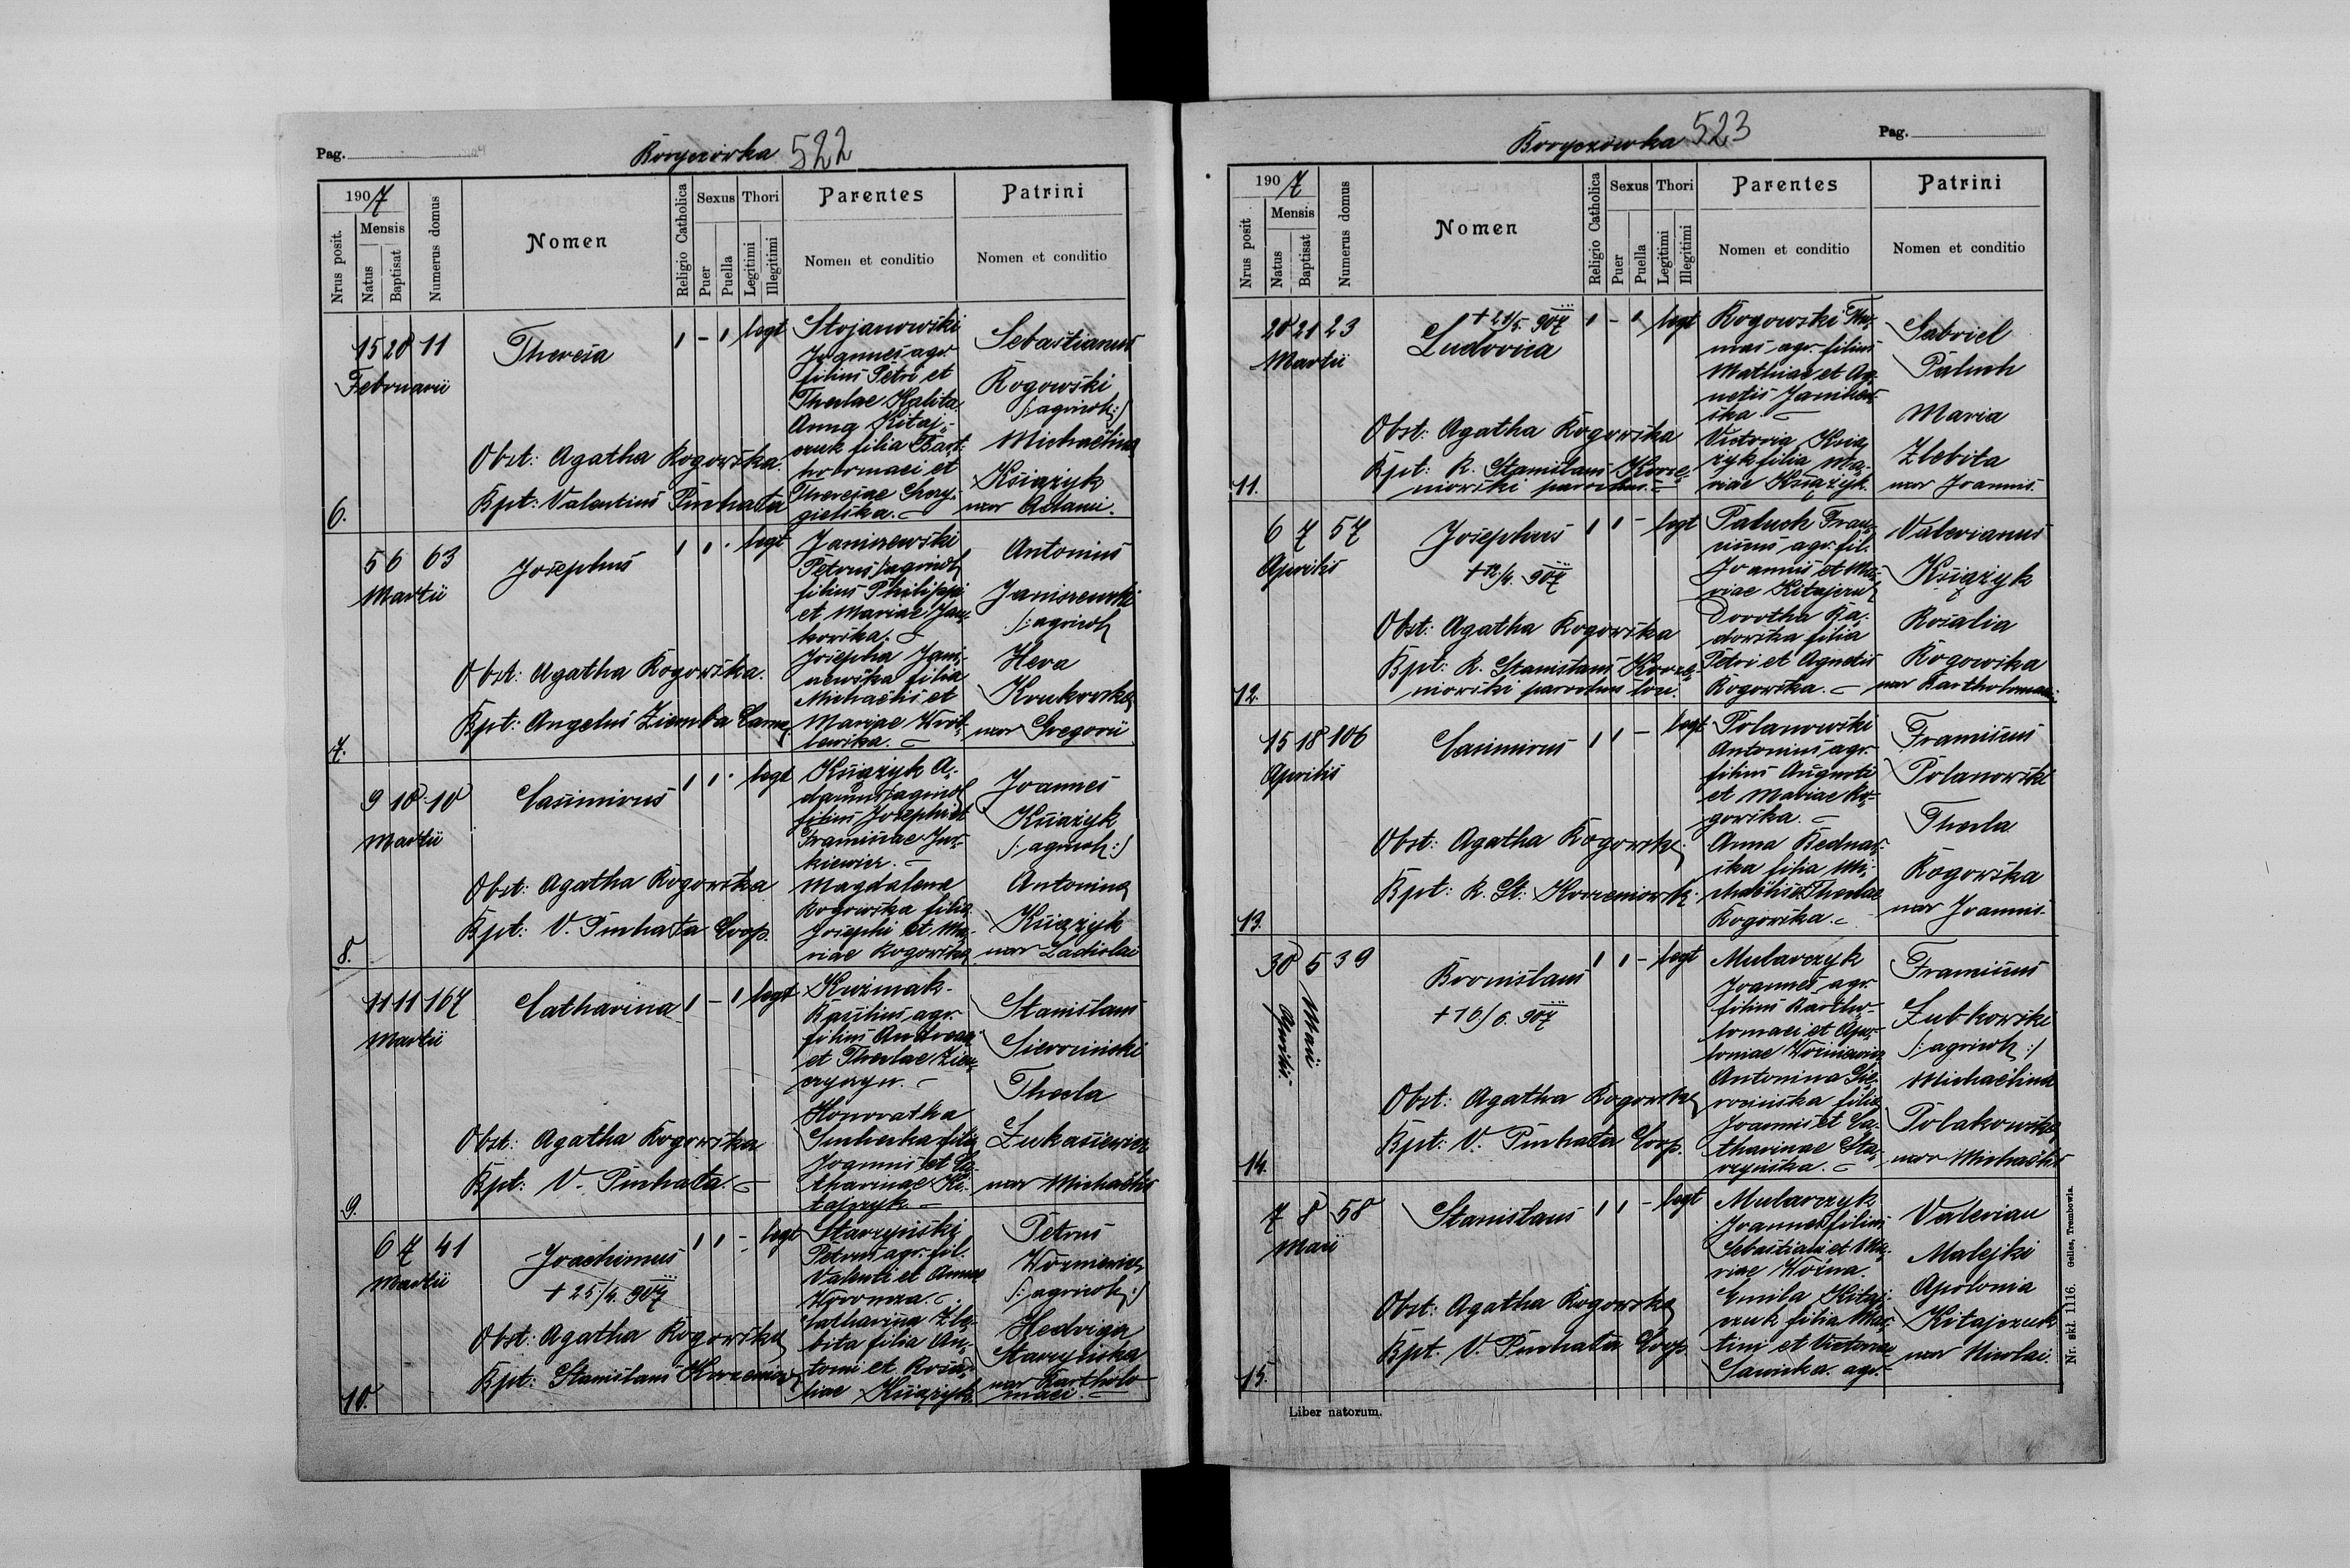 Pag.
Boryczówka 522
1907
Nrus posit.
Mensis
Natus
Baptisat
Numerus domus
Nomen
Religio Catholica
Sexus
Puer
Puella
Thori
Legitimi
Illegitimi
Parentes
Nomen et conditio
Patrini
Nomen et conditio
6.
15 20 11
Februarii
Theresia
1 - 1 legt
Obst: Agatha Rogowska.
Bpt: Valentius Puchała
Stojanowski
Joannes agr.
filius Petri et
Theclae Kalita.
Anna Kitaj-
czuk filia Bart-
holomaei et
Theresiae
gielska.
Sebastianus
Rogowski
/: agricol :/
Michaëlina
Książyk
uxor Adami.
7.
5 6 63
Martii
Josephus
1 1 - legt
Obst: Agatha Rogowska.
Bpt: Angelus Ziemba
Janiszewski
Petrus /agricol
filius Philippi
et Mariae Jan-
kowska.
Josepha Jani-
szewska filia
Michaëlis et
Mariae Wrób-
lewska.
Antonius
Janiszewski
/: agricol
Heva
Krukowska
uxor Gregorii
8.
9 10 10
Martii
Casimirus
1 1 - legt
Obst: Agatha Rogowska
Bpt: V. Puchała Coop.
Książyk A-
damus /agricol
filius Josephi et
Franciscae Jur-
kiewicz.
Magdalena
Rogowska filia
Josephi et Ma-
riae Rogowska
Joannes
Książyk
/: agricol :/
Antonina
Książyk
uxor Ladislai
9.
11 11 167
Martii
Catharina
1 - 1 legt
Obst: Agatha Rogowska
Bpt: V. Puchała.
Kuzmak
Basilius agr.
filius Andreae
et Theclae
Honoratha
filia
Joannis et Ca-
tharinae Ki-
tajczyk
Stanislaus
Sierociński
Thecla
Łukasiewicz
uxor Michaëlis
10.
6 7 41
Martii
Joachimus
+ 25/4. 907
1 1 - legt
Obst: Agatha Rogowska
Bpt: Stanislaus Korzeniow
Starzyński
Petrus agr. fil.
Valenti et Annae
Catharina Zle-
bita filia An-
toni et Rosa-
liae Książyk.
Petrus
Wozniewicz
/: agricol :/
Hedviga
Starzyńska
uxor Bartholo
maei.
Boryczówka 523
Pag.
1907
Nrus posit
Mensis
Natus
Baptisat
Numerus domus
Nomen
Religio Catholica
Sexus
Puer
Puella
Thori
Legitimi
Illegitimi
Parentes
Nomen et conditio
Patrini
Nomen et conditio
11.
20 21 23
Martii
+ 21/5. 907
Ludovica
1 - 1 legt
Obst: Agatha Rogowska
Bpt: R. Stanislaus Korze-
niowski parochus.
Rogowski Tho-
mas agr. filius
Mathiae et Ag-
netis
ska.
Victoria Ksią-
żyk filia Ma-
riae Książyk.
Gabriel
Paluch
Maria
Zlebita
uxor Joannis.
12.
6 7 57
Aprilis
Josephus
+ 12/4. 907
1 1 - legt
Obst: Agatha Rogowska
Bpt: R. Stanislaus Korze-
niowski parochus loci.
Paluch Fran-
ciscus agr. fil.
Joannis et Ma-
riae Kitajczu
Dorotha Ra-
dowska filia
Petri et Agnetis
Rogowska.
Valerianus
Książyk
Rosalia
Rogowska
uxor Bartholomaei.
13.
15 18 106
Aprilis
Casimirus
1 1 - legt
Obst: Agatha Rogowsk
Bpt: R. St. Korzeniowsk
Polanowski
Antonius agr.
filius Augusti
et Mariae Ro-
gowska.
Anna Bednar-
ska filia Mi-
chaëlis et Theclae
Rogowska.
Franciscus
Polanowski
Thecla
Rogowska
uxor Joannis.
14.
30 5 39
Aprilis. Maii
Bronislaus
+ 16/6. 907
1 1 - legt
Obst: Agatha Rogowska
Bpt: V. Puchała Coop.
Mularczyk
Joannes agr.
filius Bartho-
lomaei et Apo-
loniae Wozniewicz
Antonina Sie-
rocińska filia
Joannis et Ca-
tharinae Sta-
rzyńska.
Franciscus
Zubkowski
/: agricol :/
Michaëlina
Polakowska
uxor Michaëlis
15.
7 8 58
Maii
Stanislaus
1 1 - legt
Obst: Agatha Rogowska
Bpt. V. Puchała Coop.
Mularczyk
Joannes filius
Sebastiani et Ma-
riae Wozna.
Emila Kitaj-
czuk filia Mar-
tini et Victoriae
Sawicka. agr.
Valerian
Malejki
Apolonia
Kitajczuk
uxor Nicolai.
Liber natorum.
Nr. skł. 1116. Gelles, Trembowla.